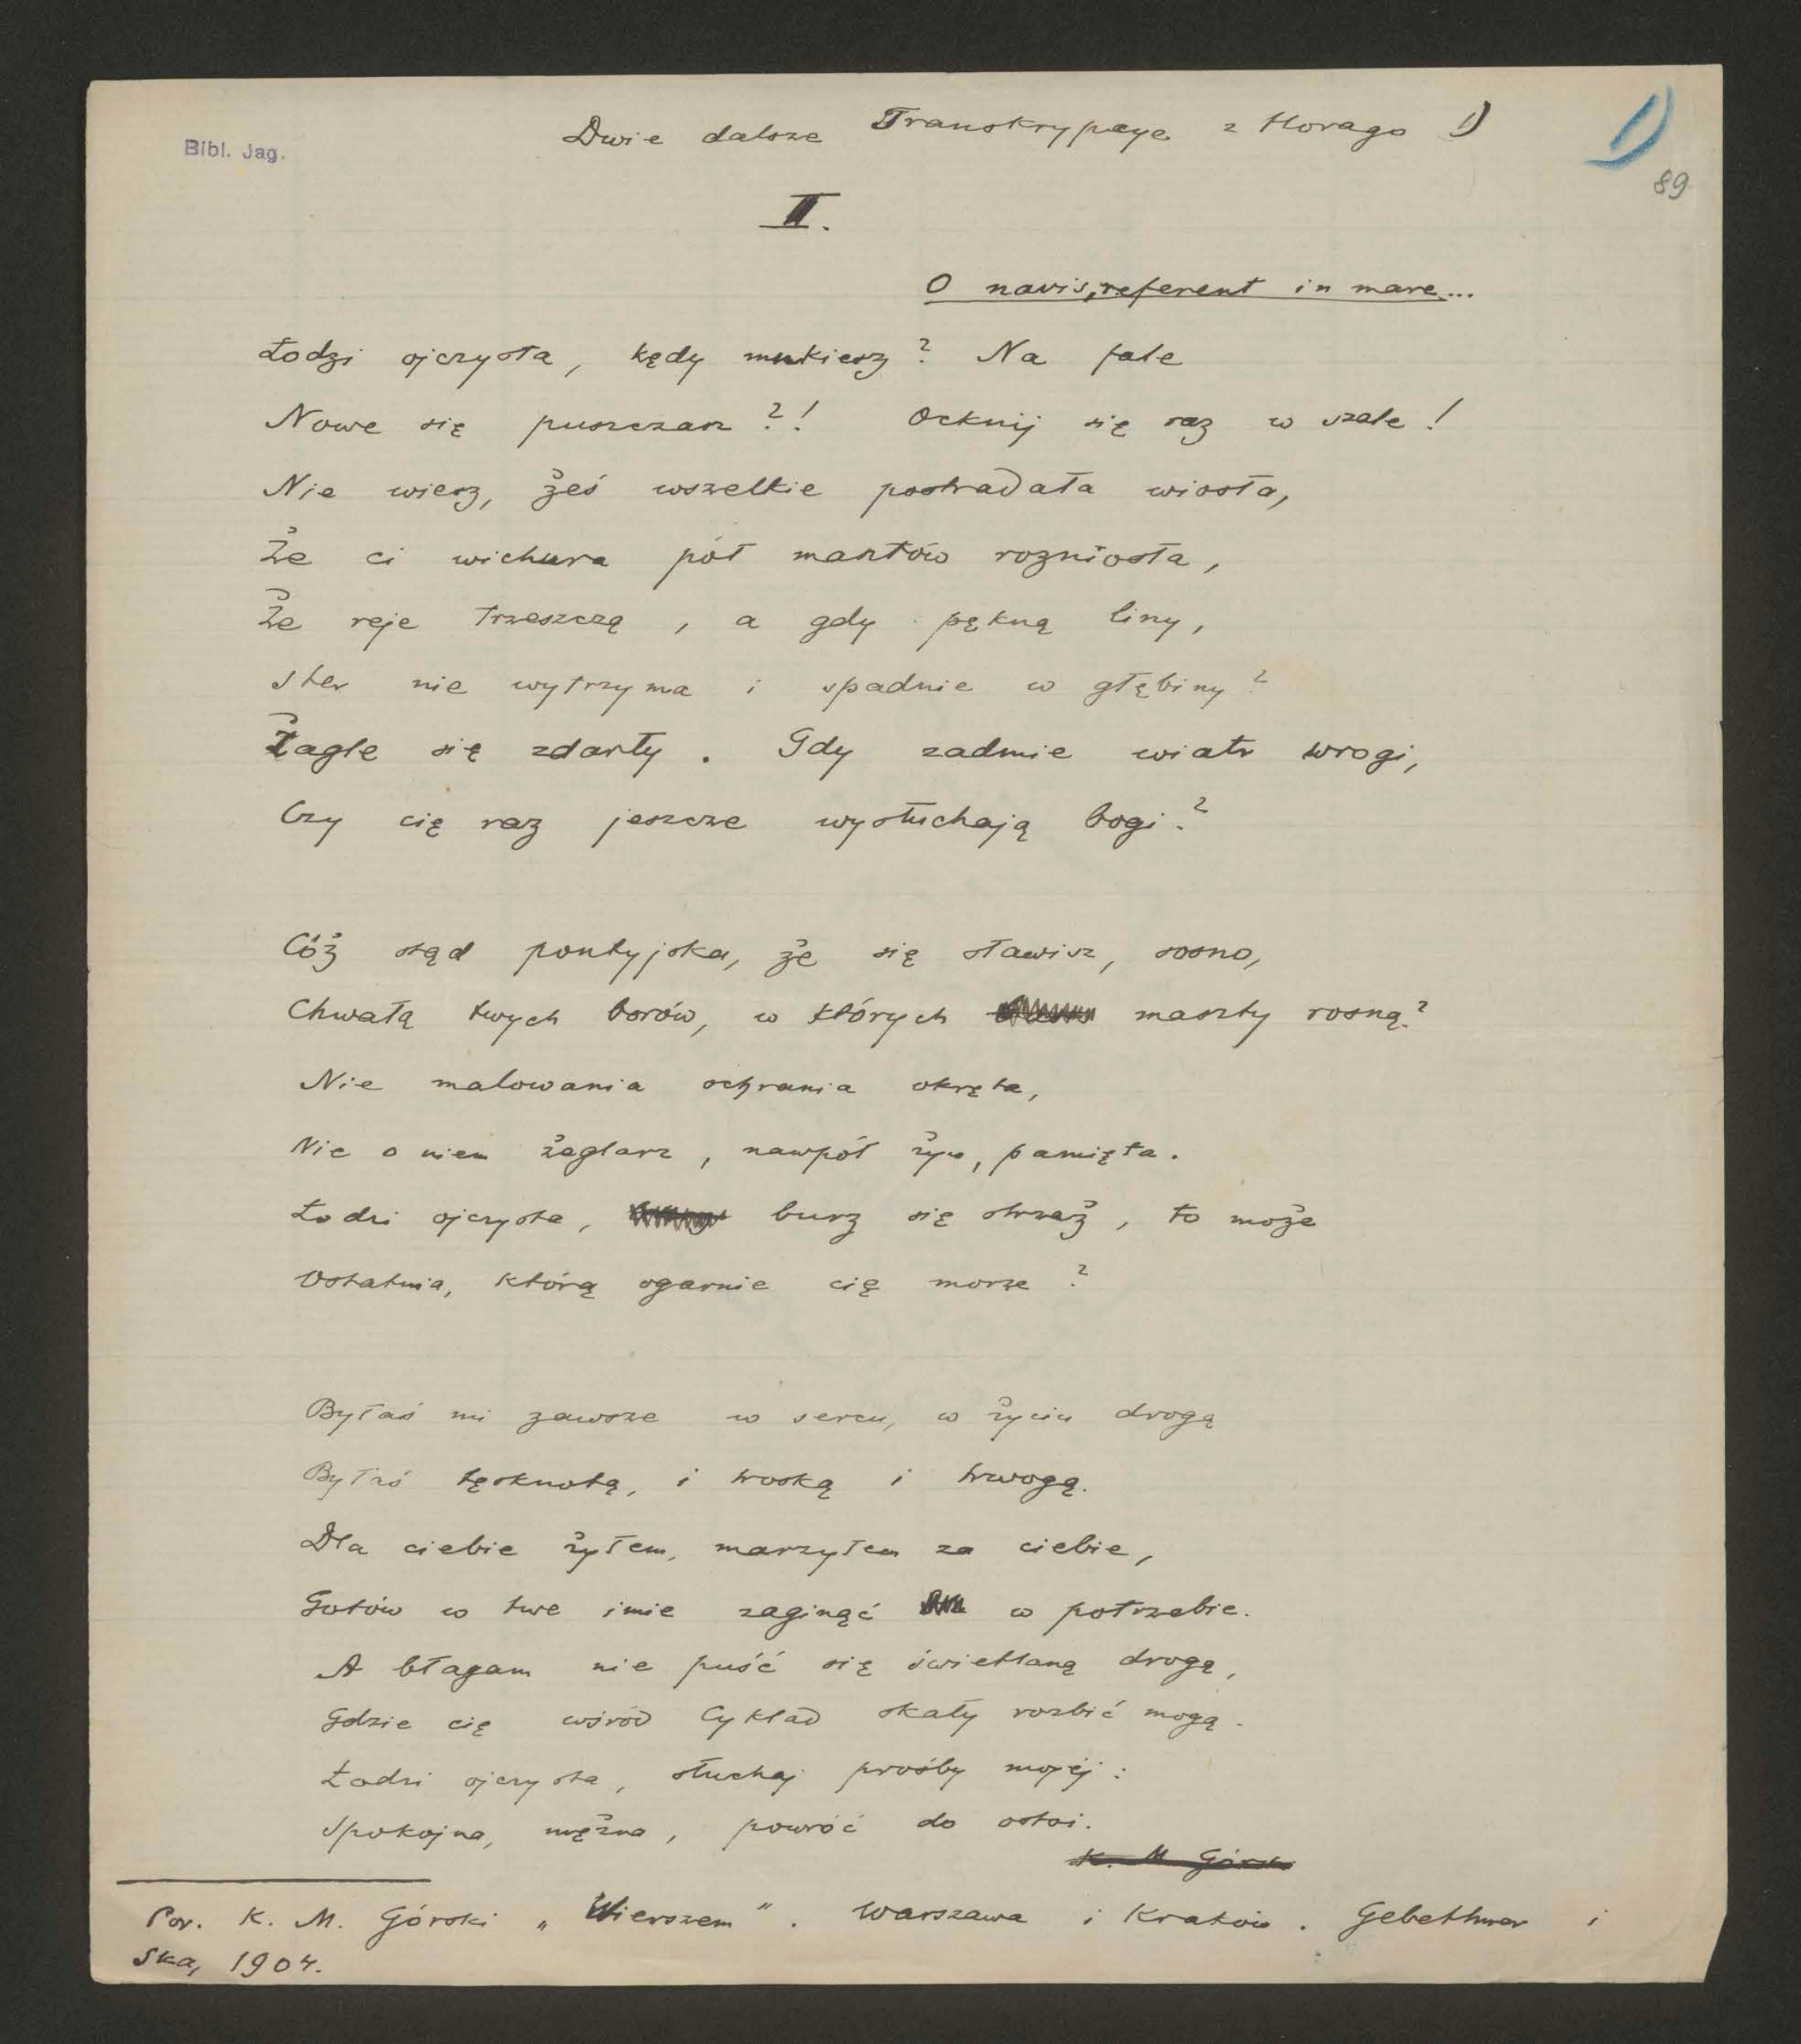 Bibl. Jag.
Dwie dalsze Transkrypcye z Horacego 1)
1)
89
II.
O navis, referent in mare...
Łodzi ojczysta, kędy mkniesz? Na fale
Nowe się puszczasz?! Ocknij się raz w szale!
Nie wiesz, żeś wszelkie postradała wiosła,
Że ci wichura pół masztów rozniosła,
Że reje trzeszczą, a gdy pękną liny,
Ster nie wytrzyma i spadnie w głębiny?
Żagle się zdarły. Gdy zadmie wiatr wrogi,
Czy cię raz jeszcze wysłuchają bogi?
Cóż stąd pontyjska, że się sławisz, sosno,
Chwałą twych borów, w których maszty rosną?
Nie malowania ochrania okręta,
Nic o niem żeglarz, nawpół żyw, pamięta.
Łodzi ojczysta, burz się strzeż, to może
Ostatnia, którą ogarnie cię morze?
Byłaś mi zawsze w sercu, w życiu drogą
Byłaś tęsknotą, i troską i trwogą.
Dla ciebie żyłem, marzyłem za ciebie,
Gotów w twe imie zaginąć w potrzebie.
A błagam nie puść się świetlaną drogą,
Gdzie cię wśród Cykład skały rozbić mogą.
Łodzi ojczysta, słuchaj prośby mojéj:
Spokojna, mężna, powróć do ostoi.
K. M Górski
Por. K. M. Górski „Wierszem". Warszawa i Kraków. Gebethner i
Ska, 1904.